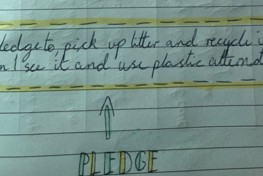 pledge to, pick up litter and recycle i
n I see it and use plastic alternat
PLEDGE